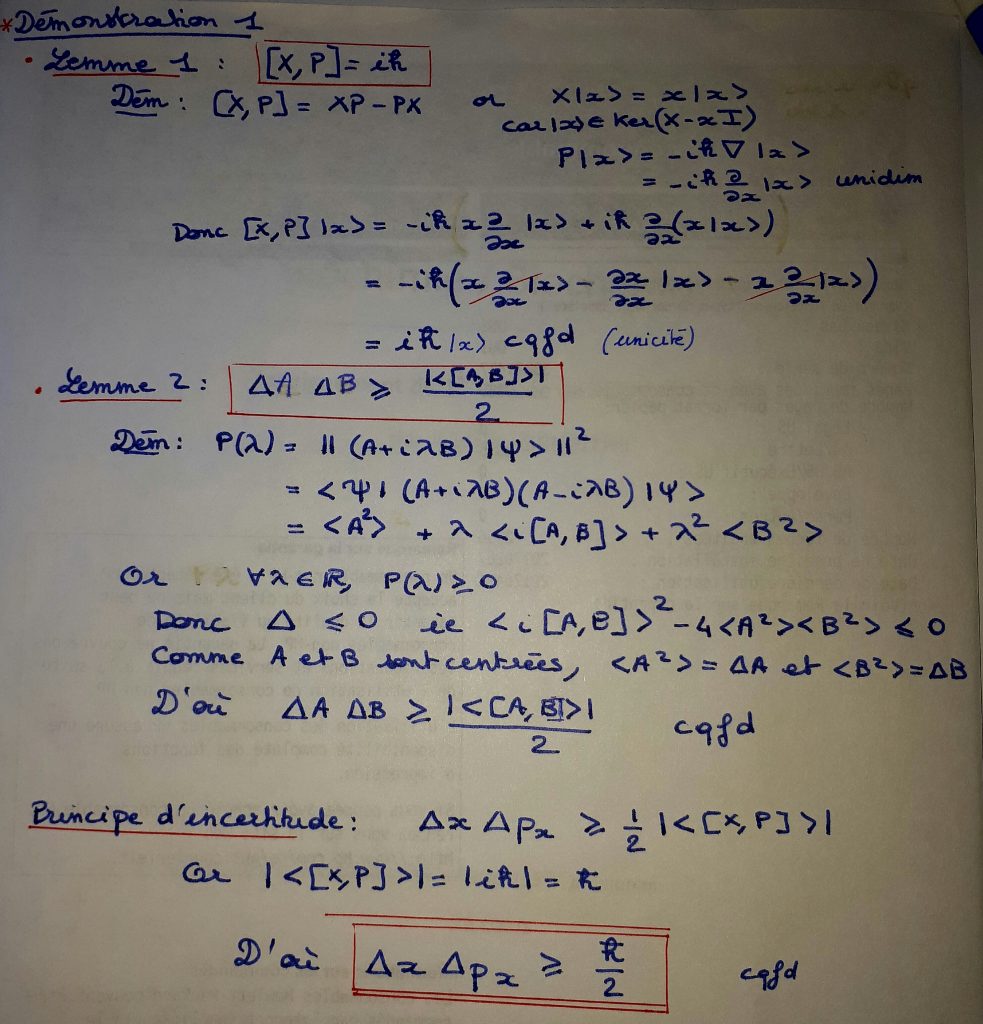 * Démonstration 1
• Lemme 1 : [X, P] = iℏ
Dém : [X, P] = XP - PX or X|x> = x|x>
car |x> ∈ Ker(X - xI)
P|x> = -iℏ∇|x>
= -iℏ ∂/∂x |x> unidim
Donc [X, P]|x> = -iℏ x ∂/∂x |x> + iℏ ∂/∂x (x|x>)
= -iℏ(x ∂/∂x |x> - ∂x/∂x |x> - x ∂/∂x |x>)
= iℏ|x> cqfd (unicité)
• Lemme 2 : ΔA ΔB ≥ |<[A, B]>|/2
Dém : P(λ) = || (A+iλB) |Ψ> ||²
= <Ψ| (A+iλB)(A-iλB) |Ψ>
= <A²> + λ <i[A, B]> + λ² <B²>
Or ∀λ ∈ ℝ, P(λ) ≥ 0
Donc Δ ≤ 0 ie <i[A, B]>² - 4<A²><B²> ≤ 0
Comme A et B sont centrées, <A²> = ΔA et <B²> = ΔB
D'où ΔA ΔB ≥ |<[A, B]>|/2 cqfd
Principe d'incertitude : Δx Δpx ≥ 1/2 |<[X, P]>|
Or |<[X, P]>| = |iℏ| = ℏ
D'où Δx Δpx ≥ ℏ/2 cqfd